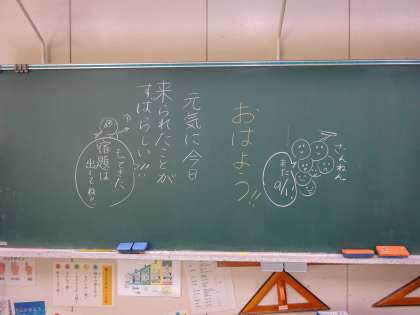 さんねん
また
おはよう!!
元気に今日
来られたことが
すばらしい!!
もってきた
宿題は
出してね!!